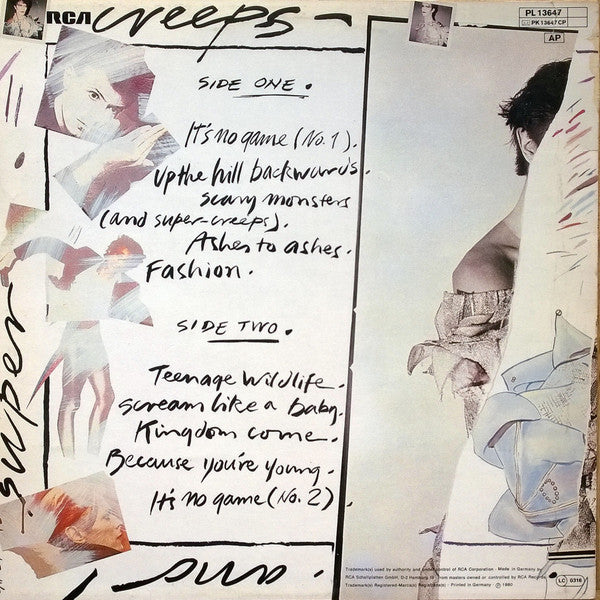 RCA creeps -
PL 13647
PK 13647 CP
AP
SIDE ONE.
It's no game (No. 1).
Up the hill backwards.
scary monsters
(and super-creeps).
Ashes to ashes.
Fashion.
SIDE TWO.
Teenage Wildlife.
Scream like a baby.
Kingdom come.
Because you're young.
It's no game (No. 2)
super
and
Trademark(s) used by authority and under control of RCA Corporation · Made in Germany by
RCA Schallplatten GmbH, D-2 Hamburg 19 · from masters owned or controlled by RCA Records
Trademark(s) Registered-Marca(s) Registrada(s) · Printed in Germany · Ⓟ 1980
LC 0316